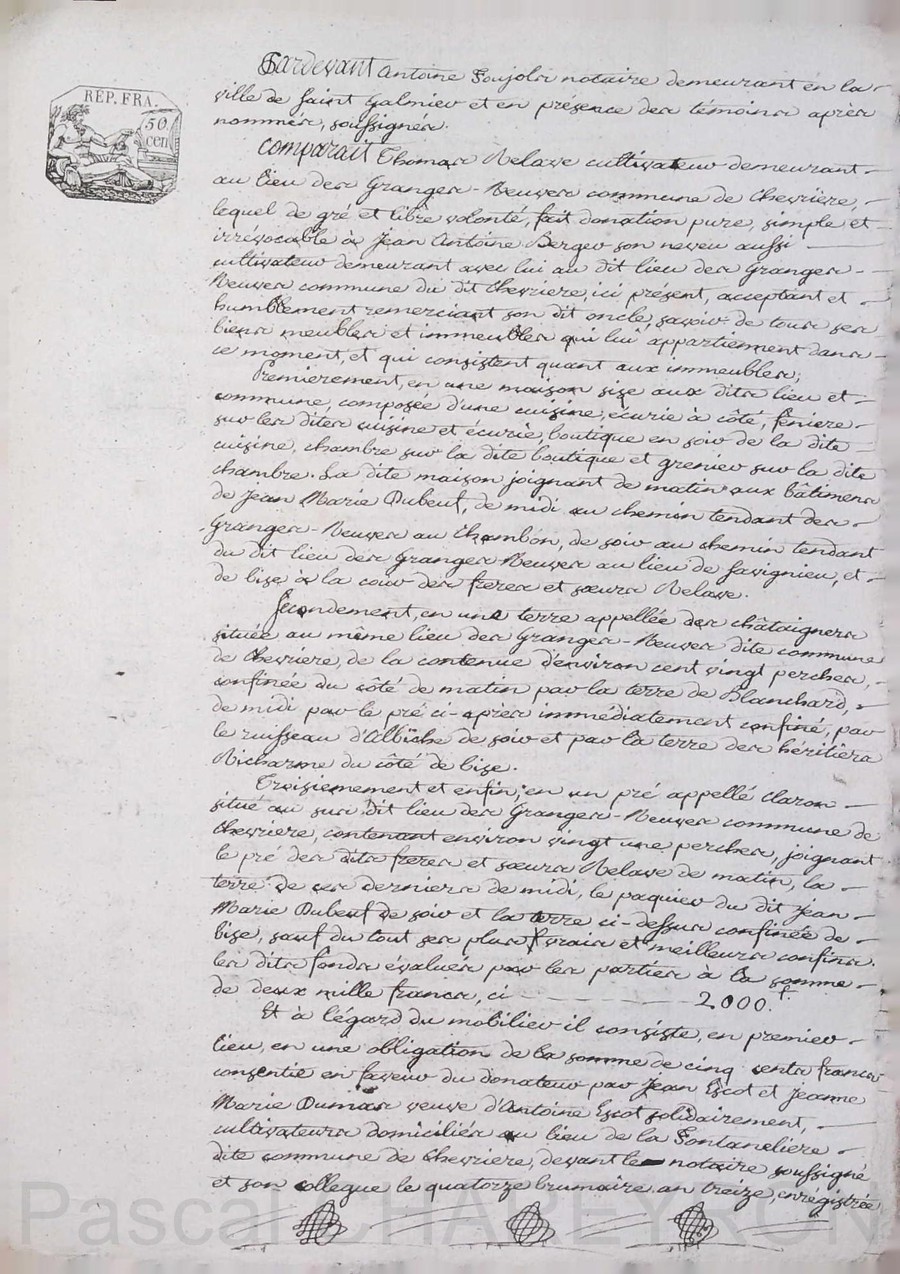 REP. FRA.
50
cen
Pardevant Antoine Poujola notaire demeurant en la
ville de Saint Galmier et en présence des témoins après
nommés, soussignés.
Comparait Thomas Relave cultivateur demeurant
au lieu des Granges-Neuves commune de Chevrière,
lequel de gré et libre volonté, fait donation pure, simple et
irrévocable à Jean Antoine Berger son neveu aussi
cultivateur demeurant avec lui au dit lieu des Granges-
Neuves commune du dit Chevriere, ici présent, acceptant et
humblement remerciant son dit oncle, savoir de tous ses
biens meubles et immeubles qui lui appartiennent dans
ce moment, et qui consistent quant aux immeubles;
Premierement, en une maison size aux dits lieu et
commune, composée d'une cuisine, écurie à côté, feniere
sur les dites cuisine et écurie, boutique en soir de la dite
cuisine, chambre sur la dite boutique et grenier sur la dite
chambre. La dite maison joignant de matin aux bâtimens
de Jean Marie Dubeuf, de midi au chemin tendant des
Granges-Neuves au Chambon, de soir au chemin tendant
du dit lieu des Granges Neuves au lieu de Savignieu, et
de bise à la cour des freres et sœurs Relave.
Secondement, en une terre appellée des châtaigners
située au même lieu des Granges-Neuves dite commune
de Chevriere, de la contenue d'environ cent vingt perches,
confinée du côté de matin par la terre de Blanchard,
de midi par le pré ci-après immédiatement confiné, par
le ruisseau d'Albiche de soir et par la terre des héritiers
Richarme du côté de bise.
Troisiemement et enfin, en un pré appellé Claron
situé au sus dit lieu des Granges-Neuves commune de
Chevriere, contenant environ vingt une perches, joignant
le pré des dits freres et sœurs Relave de matin, la
terre de ces derniers de midi, le paquier du dit Jean
Marie Dubeuf de soir et la terre ci-dessus confinée de
bise, sauf du tout ses plus vrais et meilleurs confins.
les dits fonds évalués par les parties à la somme
de deux mille francs, ci 2000.f
Et à l'égard du mobilier il consiste, en premier
lieu, en une obligation de la somme de cinq cents francs
consentie en faveur du donateur par Jean Escot et Jeanne
Marie Dumas veuve d'Antoine Escot solidairement,
cultivateurs domiciliés au lieu de la Fontaneliere
dite commune de Chevriere, devant le notaire soussigné
et son collegue le quatorze brumaire an treize, enrégistrée
Pascal CHAREYRON